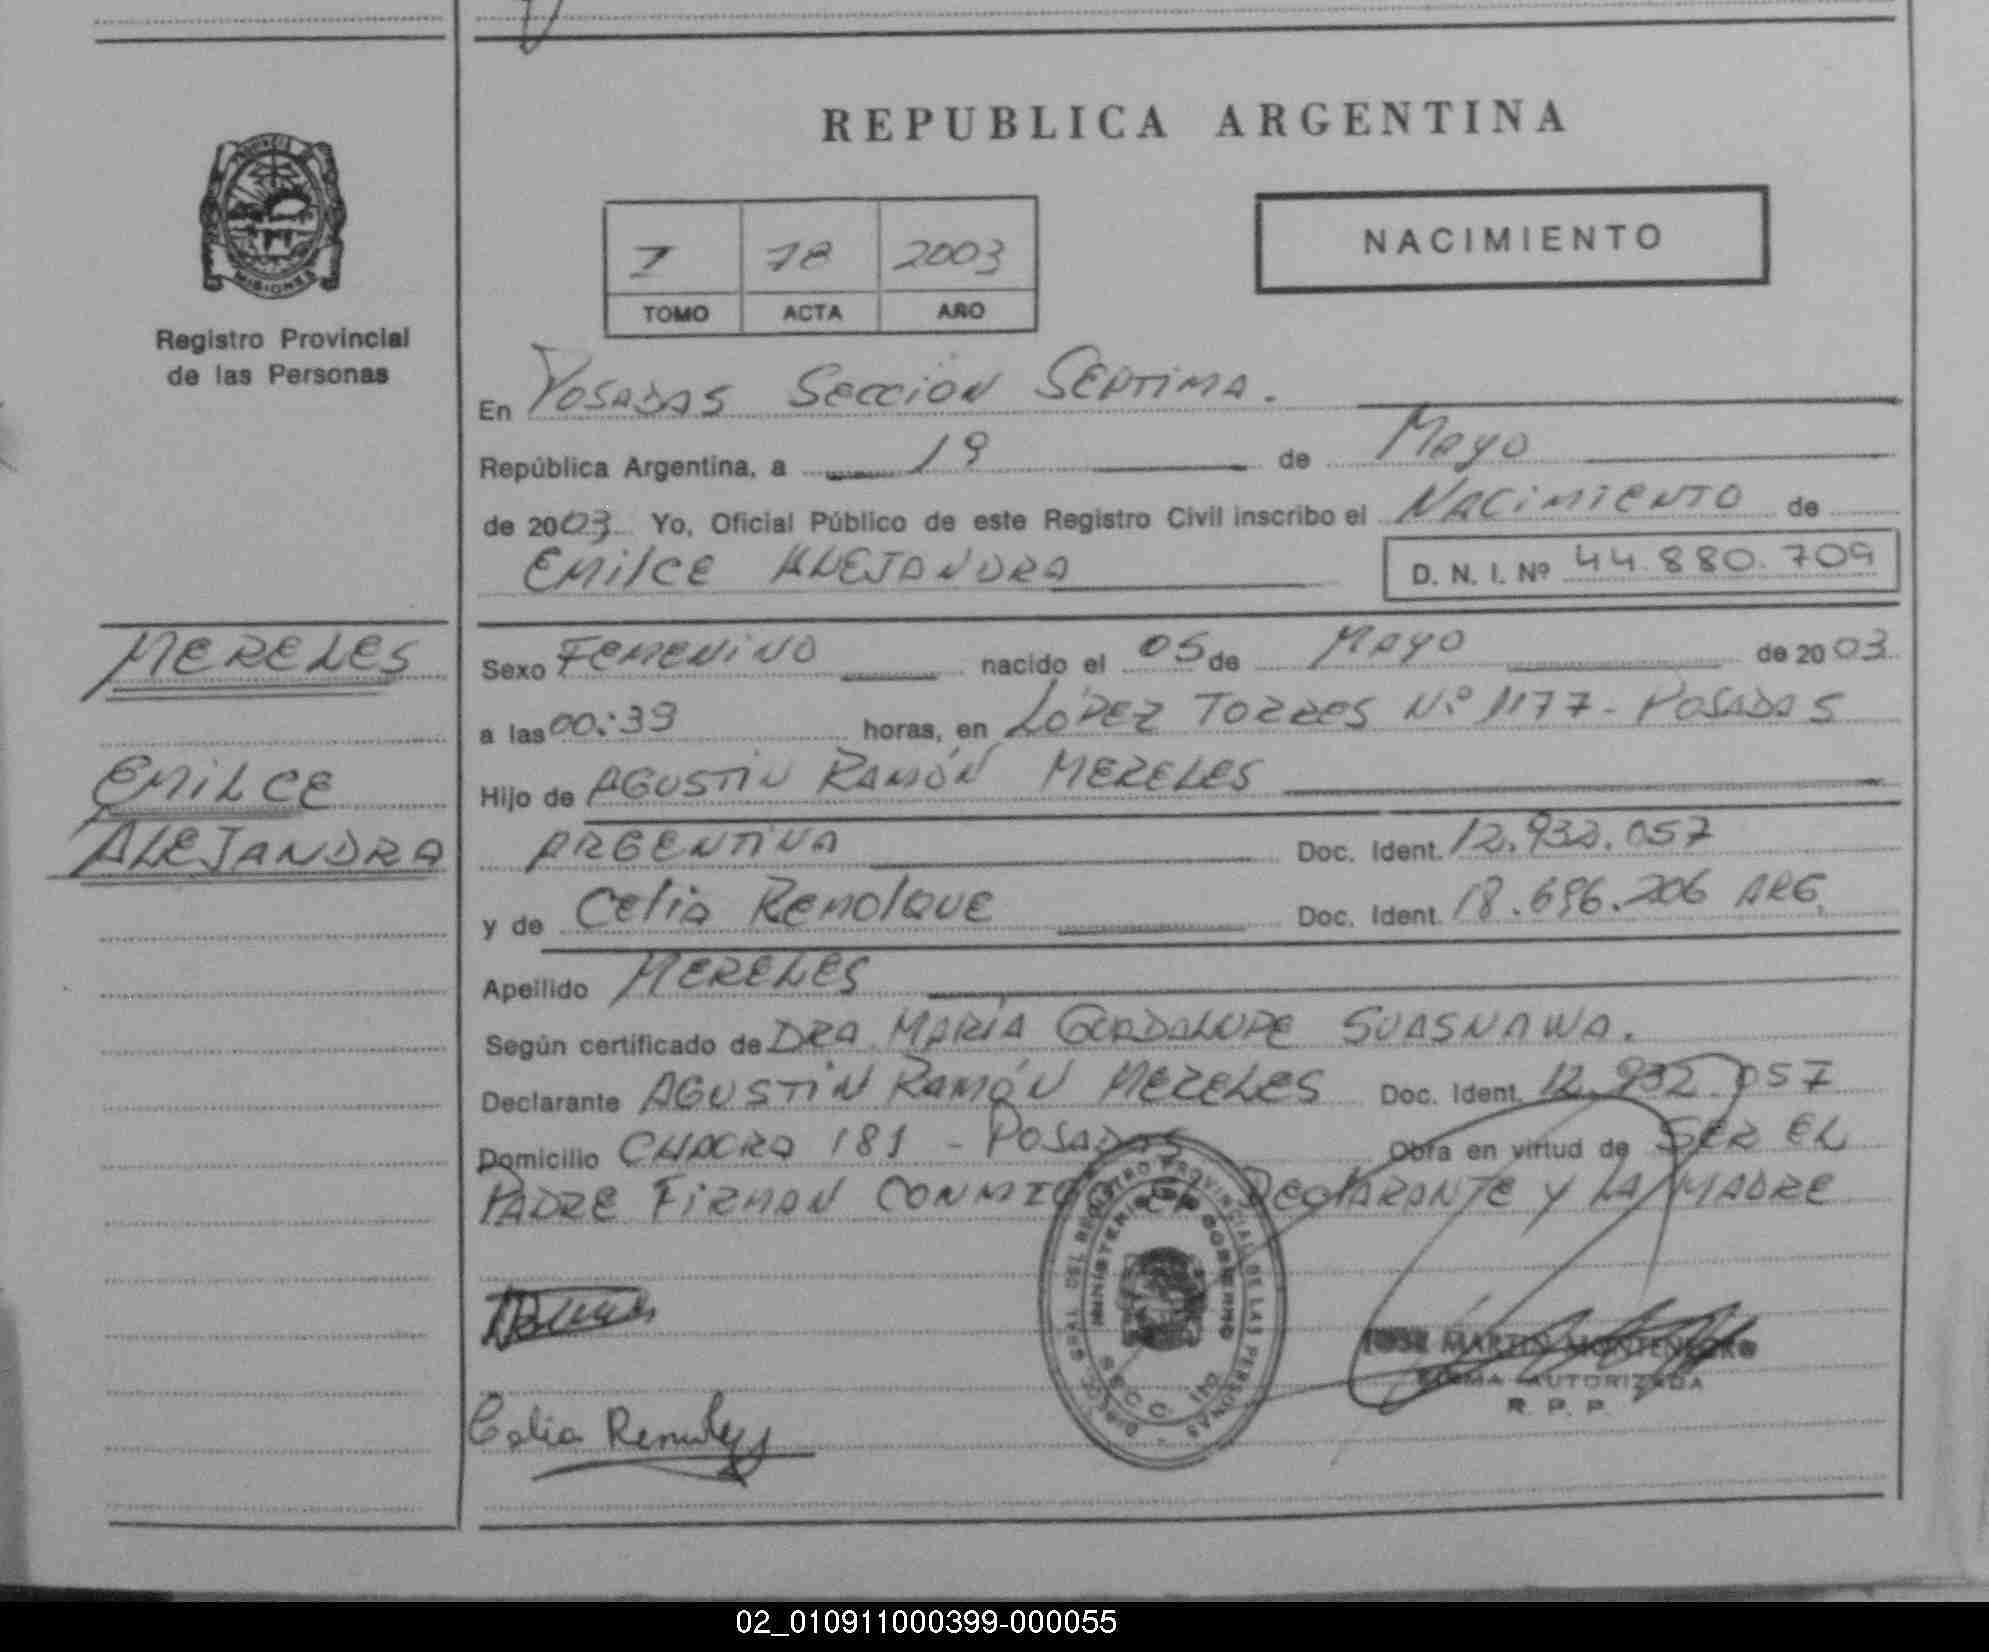 REPUBLICA ARGENTINA
PROVINCIA DE MISIONES
Registro Provincial
de las Personas
I 78 2003
TOMO ACTA AÑO
NACIMIENTO
En POSADAS SECCION SEPTIMA.
República Argentina, a 19 de Mayo
de 2003 Yo, Oficial Público de este Registro Civil inscribo el NACIMIENTO de
EMILCE ALEJANDRA D. N. I. Nº 44.880.709
MERELES
EMILCE
ALEJANDRA
Sexo FEMENINO nacido el 05 de MAYO de 2003
a las 00:39 horas, en LÓPEZ TORRES Nº 1177 - POSADAS
Hijo de AGUSTIN RAMÓN MERELES
ARGENTINA Doc. Ident. 12.932.057
y de Celia Remolque Doc. Ident. 18.696.206 ARG.
Apellido MERELES
Según certificado de DRA. MARÍA GUADALUPE
Declarante AGUSTIN RAMÓN MERELES Doc. Ident. 12.932.057
Domicilio CHACRA 181 - POSADAS Obra en virtud de SER EL
PADRE FIRMAN CONMIGO EL DECLARANTE Y LA MADRE
DIREC. GRAL. DEL REGISTRO PROVINCIAL DE LAS PERSONAS
MINISTERIO DE GOBIERNO
SECC.
JOSE MARTIN MONTENEGRO
FIRMA AUTORIZADA
R. P. P.
Celia
02_010911000399-000055